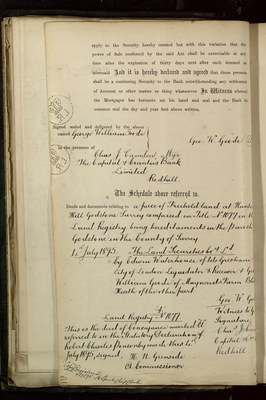 apply to the Security hereby created but with this variation that the
power of Sale conferred by the said Act shall be exercisable at any
time after the expiration of thirty days next after such demand as
aforesaid And it is hereby declared and agreed that these presents
shall be a continuing Security to the Bank notwithstanding any settlement
of Account or other matter or thing whatsoever In Witness whereof
the Mortgagor has hereunto set his hand and seal and the Bank its
common seal the day and year first above written.
Signed sealed and delivered by the above
named George William Goode
in the presence of
Geo W Goode
Chas J Mgr
The Capital & Counties Bank
Limited
Redhill.
The Schedule above referred to.
Deeds and documents relating to a piece of Freehold land at
Hill Godstone Surrey comprised in Title No 1077 on the
Land Registry being hereditaments in the parish
Godstone in the County of Surrey
1st July 1895 The Land Securities Co Ld
by Edwin Waterhouse of 44 Gresham
City of London Liquidator & Receiver & Geo
William Goode of Maynards Farm
Heath of the other part
Geo W Go
Land Registry No 1077
Witness to
Signature
This is the deed of conveyance marked
referred to in the Statutory Declaration of
Robert Charles Ponsonby made this 1st
July 1895, signed, H. N.
A Commissioner
Chas J
Capital &
Redhill